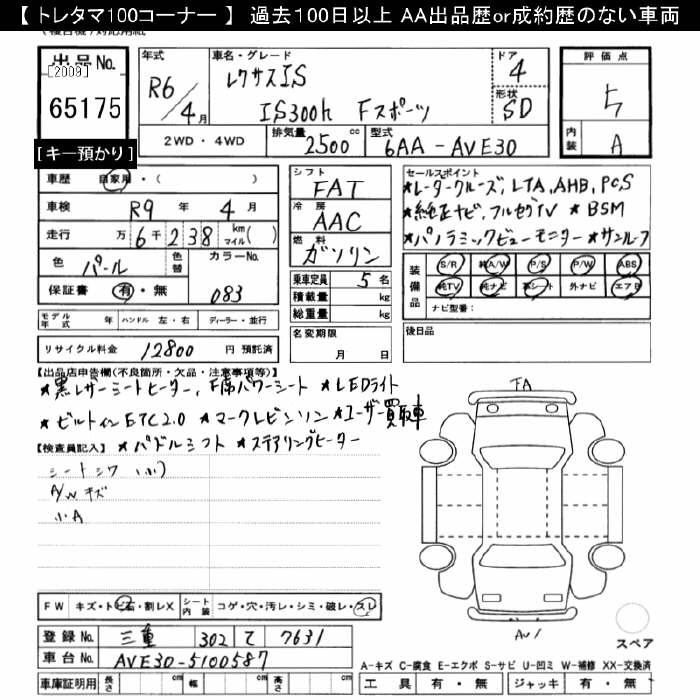 【 トレタマ100コーナー 】 過去100日以上 AA出品歴or成約歴のない車両
出品No.
[2009]
65175
[キー預かり]
年式
R6/4月
車名・グレード
レクサスIS
IS300h Fスポーツ
ドア
4
形状
SD
評価点
5
内装
A
2WD ・ 4WD
排気量 2500 cc
型式 6AA-AVE30
車歴 自家用・( )
車検 R9 年 4 月
走行 万 6 千 238 km マイル( )
色 パール 色替 カラーNo.
保証書 有・無 083
モデル年式 年 ハンドル 左・右 ディーラー・並行
リサイクル料金 12800 円 預託済
シフト
FAT
冷房
AAC
燃料
ガソリン
乗車定員 5 名
積載量 kg
総重量 kg
名変期限
月 日
セールスポイント
★レーダークルーズ, LTA, AHB, PCS
★純正ナビ, フルセグTV ★BSM
★パノラミックビューモニター ★サンルーフ
装備品
S/R 純A/W P/S P/W ABS
純TV 純ナビ 革シート 外ナビ エアB
ナビ型番:
後日品
【出品店申告欄(不良箇所・欠品・注意事項等)】
★黒レザーシートヒーター, F席パワーシート ★LEDライト
★ビルトインETC2.0 ★マークレビンソン ★ユーザー買取車
【検査員記入】 ★パドルシフト ★ステアリングヒーター
シートシワ (小)
A/W キズ
小A
FW キズ・トビ石・割レX シート内装 コゲ・穴・汚レ・シミ・破レ・スレ
登録No. 三重 302 て 7631
車台No. AVE30-5100587
車庫証明用 長さ cm 幅 cm 高さ cm
FA
AU1
スペア
A-キズ C-腐食 E-エクボ S-サビ U-凹ミ W-補修 XX-交換済
工具 有・無 ジャッキ 有・無